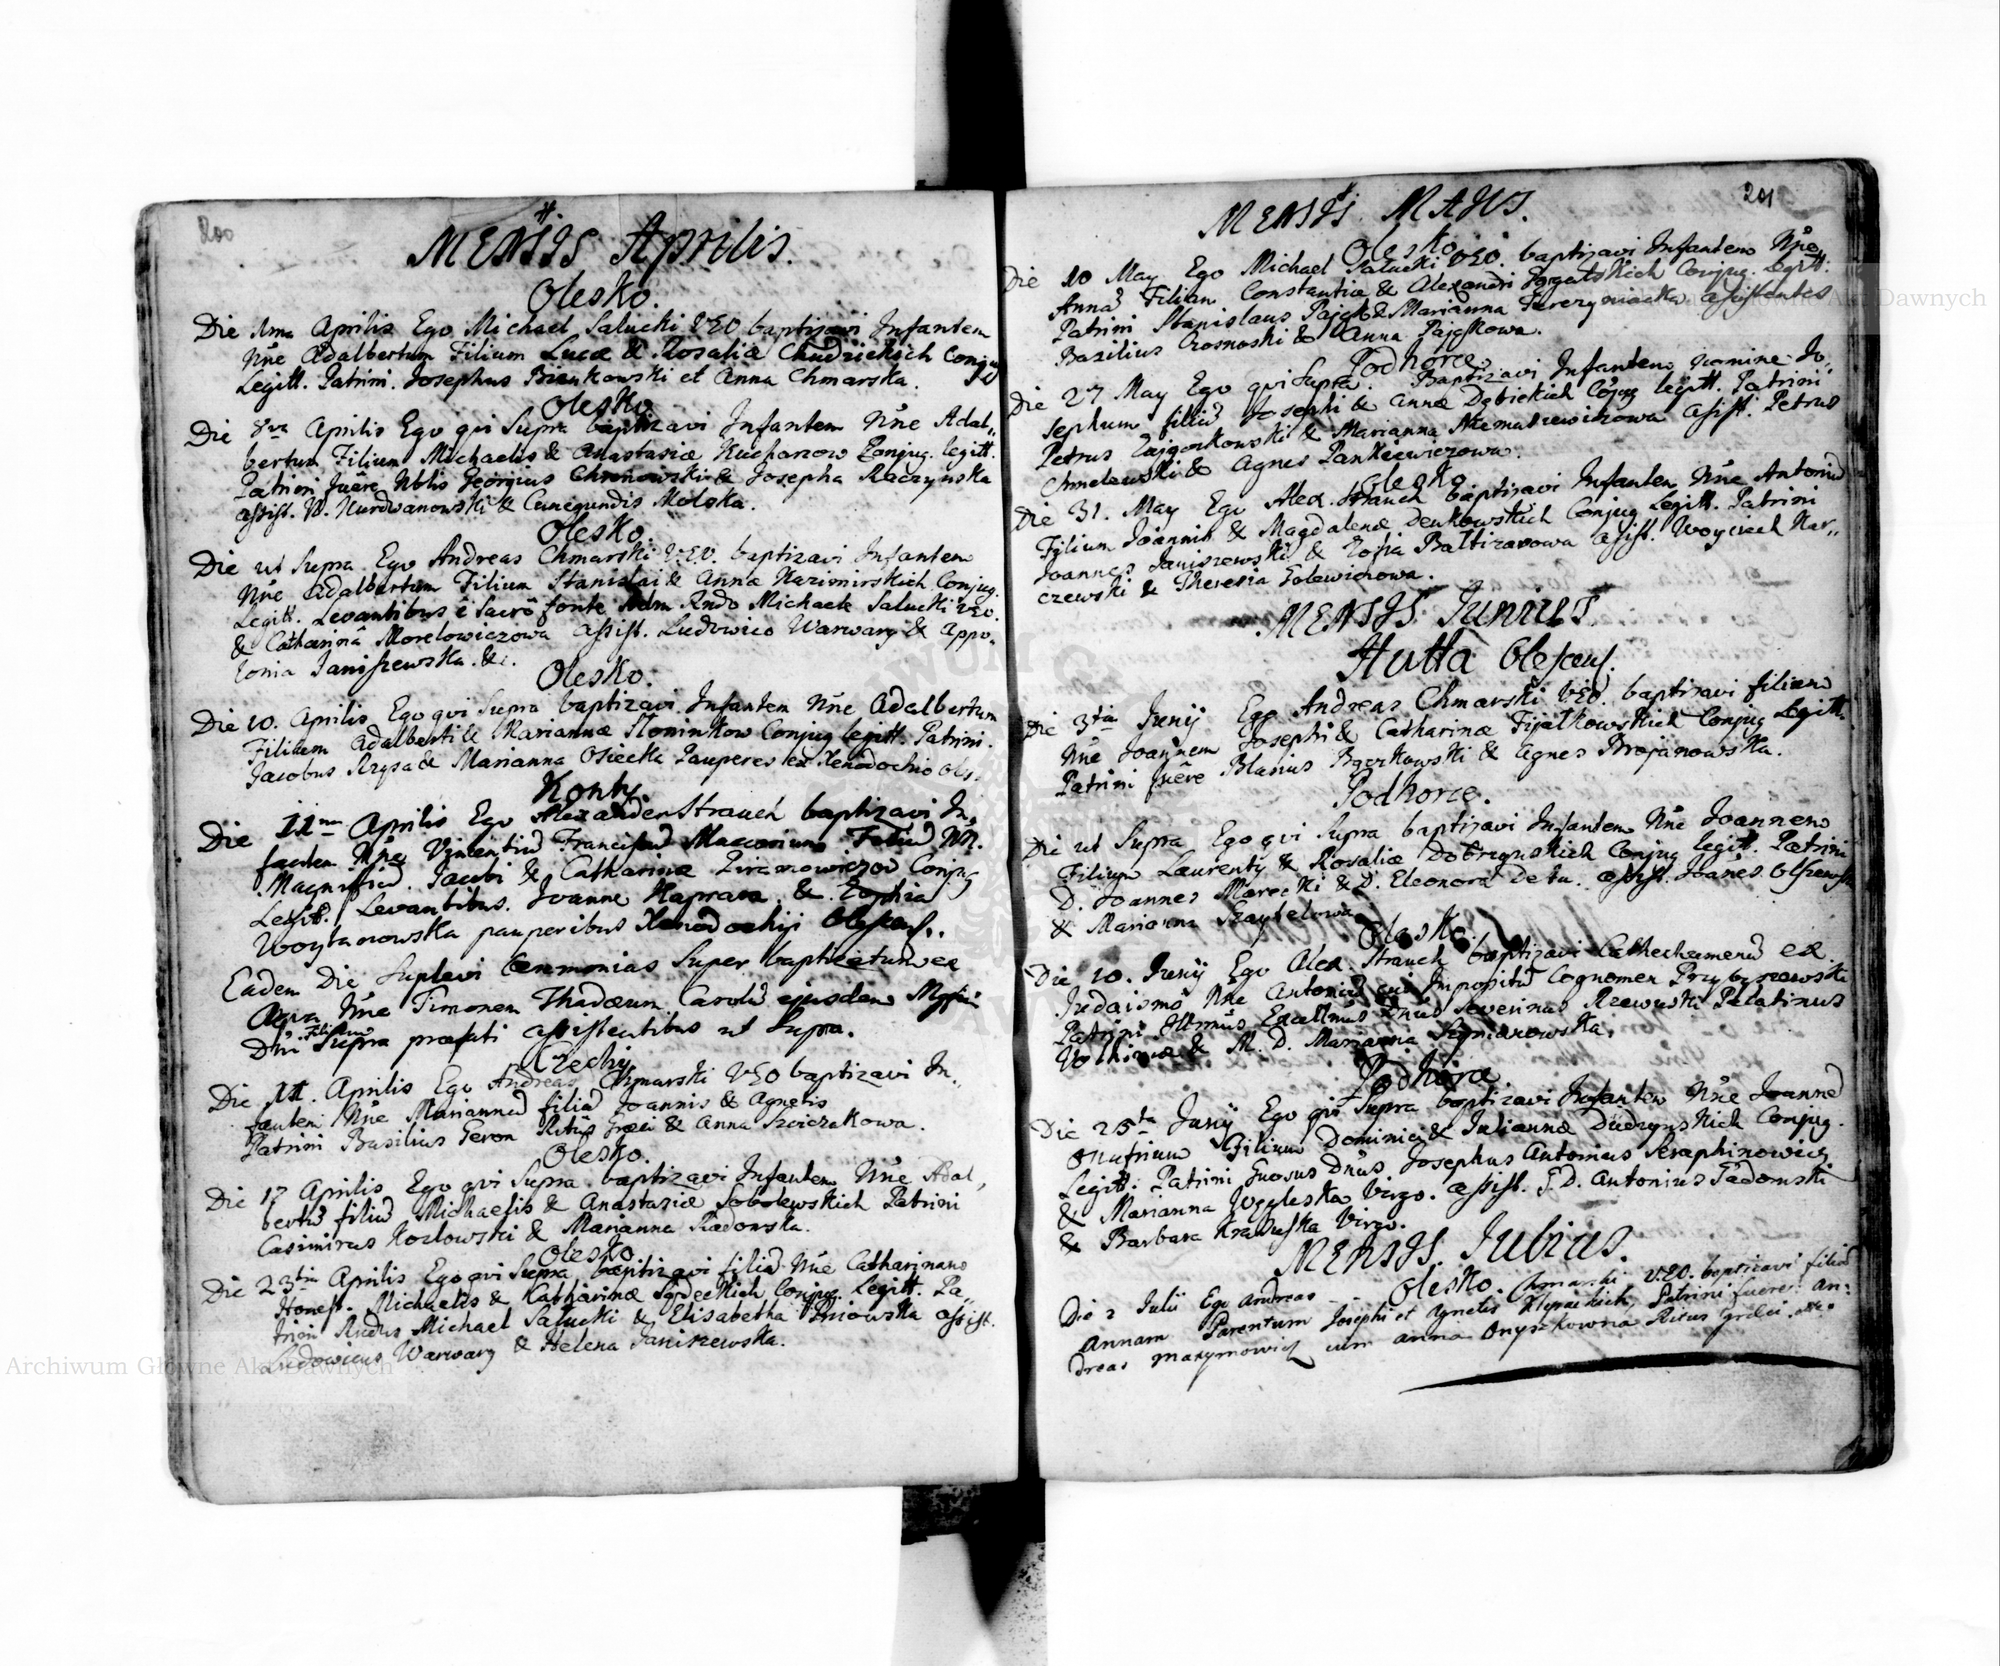 200
MENSIS Aprilis.
Olesko.
Die 1ma Aprilis Ego Michael Salucki VEO baptizavi Infantem
Nne Adalbertum Filium Lucæ & Rosaliæ Chudzickich Conjug
Legitt. Patrini. Josephus Bienkowski et Anna Chmarska.
Olesko
Die 8va Aprilis Ego qvi Supra baptizavi Infantem Nne Adal„
bertum Filium Michaelis & Anastasiæ Kucharzow Conjug. legitt.
Patrini fuere Nblis Georgius Chronowski & Josepha Raczynska
assist. N. Hurdwanowski & Cunegundis Molska.
Olesko.
Die ut Supra Ego Andreas Chmarski V.E.O. baptizavi Infantem
Nne Adalbertum Filium Stanislai & Annæ Kazimirskich Conjug.
Legitt. Levantibus è Sacrô fonte Adm Rndo Michaele Salucki VEO.
& Catharina Morelowiczowa assist. Ludowico Warwary & Appo„
lonia Janiszewska. &c.
Olesko.
Die 10. Aprilis Ego qvi Supra baptizavi Infantem Nne Adalbertum
Filium Adalberti & Mariannæ Slominkow Conjug legitt. Patrini.
Jacobus Ryysa & Marianna Osiecka Pauperes ex Xenodochio Ols.
Konty.
Die 11ma Aprilis Ego Alexander Strauch baptizavi In„
fantem Nne Vincentiu Franciscu Macarium Filiu NN.
Magnificor. Jacobi & Catharinæ Ziramowiczow Conjug
Legitt. Levantibus. Joanne Kaprara & Zophia
Woytanowska pauperibus Xenodochij Olescens.
Eadem Die Suplevi Ceremonias Super baptizatum ex
Aqva Nne Timonem Thadæum Carolu ejusdem Mgfci
Dni Filium Supra præfati assistentibus ut Supra.
Czechy
Die 11. Aprilis Ego Andreas Chmarski VEO baptizavi In„
fantem Nne Mariannam filia Joannis & Agnetis
Patrini Basilius Feron Ritus Græci & Anna Szviczakowa.
Olesko.
Die 17 Aprilis Ego qvi Supra baptizavi Infantem Nne Adal„
bertu filiu Michaelis & Anastasiæ Sobolewskich Patrini
Casimirus Kozlowski & Marianna Radomska.
Olesko
Die 23tia Aprilis Ego qvi Supra baptizavi filia Nne Catharinam
Honest. Michaelis & Katharinæ Conjug. Legitt. Pa„
trini Rndus Michael Salucki & Elisabetha assist.
Ludowicus Warwary & Helena Janiszewska.
201
MENSIS MAIUS.
Olesko
Die 10 May Ego Michael Salucki VEO. baptizavi Infantem Nne
Anna Filiam Constantiæ & Alexandri Conjug. Legitt.
Patrini Stanislaus Pajak & Marianna assistentes
Basilius Krosnoski & Anna Pajakowa.
Podhorce
Die 27 May Ego qvi Supra. Baptizavi Infantem nomine Jo„
sephum filiu Josephi & Annæ Dębickich Cojug legitt. Patrini
Petrus Zajgorkowski & Marianna Niemalzewiczowa assist. Petrus
Chmelewski & Agnes Pankiewiczowa.
Olesko
Die 31. May Ego Alex. Strauch baptizavi Infantem Nne Antoniu
Filium Joannis & Magdalenæ Denkowskich Conjug Legitt. Patrini
Joannes Janiszewski & Zofia Baltizarowa assist. Woyciech Kar„
czewski & Theresia Golewiczowa.
MENSIS Junius.
Hutta Olescens.
Die 3tia Junij Ego Andreas Chmarski VEO. baptizavi filium
Nne Joannem Josephi & Catharinæ Fijalkowskich Conjug Legitt.
Patrini fuêre Blasius & Agnes Brojanowska.
Podhorce.
Die ut Supra Ego qvi Supra baptizavi Infantem Nne Joannem
Filium Laurenty & Rosaliæ Dobrzynskich Conjug legitt. Patrini
D. Joannes Marecki & D. Eleonora De tu. assist. Joanes Olszewski
& Marianna Szaybelowa
Olesko.
Die 10. Junij Ego Alex. Strauch baptizavi Cathechumenu ex
Judaismo Nne Antoniu cui Impositu Cognomen Przybyszewski
Patrini Illrmus Excellmus Dnus Severinus Rzewuski Palatinus
Volhiniæ & M. D. Marianna
Podhorce.
Die 25ta Junij Ego qvi Supra baptizavi Infantem Nne Joanne
Onufrium Filium Dominici & Juliannæ Dudzynskich Conjug.
Legitt. Patrini Gnosus Dnus Josephus Antonius Seraphinowicz
& Marianna Jogglska Virgo. assist. G. D. Antonius Sadomski
& Barbara Krakuska Virgo.
MENSIS. Iulius.
Olesko
Die 2 Julii Ego Andreas Chmarski V.E.O. baptizavi filia
Annam Parentum Josephi et Agnetis Patrini fuere: An:
dreas Maxymowicz cum Anna Onyszkowna Ritus Græci.
Archiwum Główne Akt Dawnych
Archiwum Główne Akt Dawnych